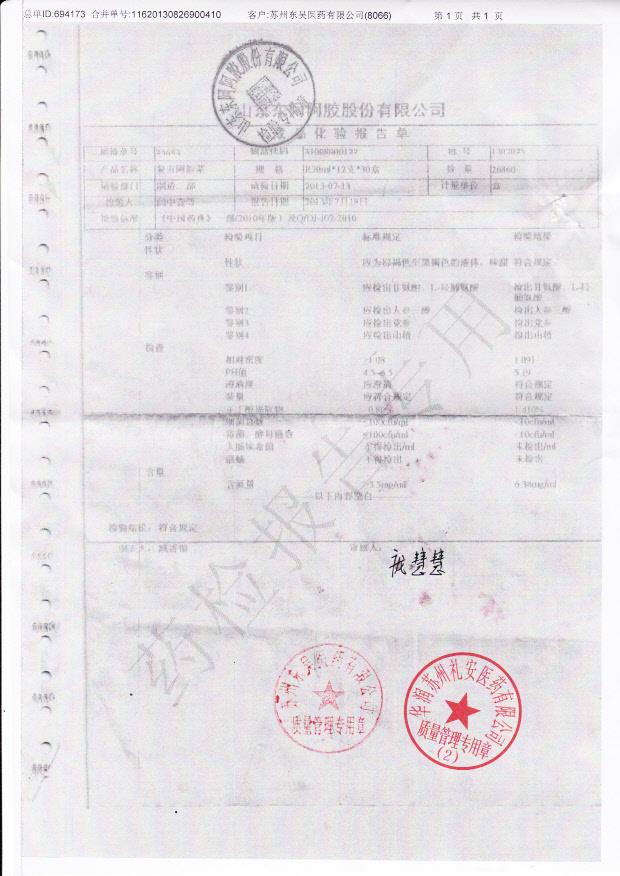 总单ID:694173 合并单号:11620130826900410 客户:苏州东吴医药有限公司(8066) 第1页 共1页
山东东阿阿胶股份有限公司
化验报告单
产品名称 复方阿胶浆 规格 数量 26860
请验部门 制造二部 请验日期 2013-07-13 计量单位 盒
检验人 报告日期 2013年7月18日
检验标准 《中国药典》一部(2010年版)及
分类 检验项目 标准规定 检验结果
性状
性状 应为棕褐色至黑褐色的液体,味甜 符合规定
鉴别
鉴别1 应检出甘氨酸、L-羟脯氨酸 检出甘氨酸、L-羟脯氨酸
鉴别2 应检出人参二醇 检出人参二醇
鉴别3 应检出党参 检出党参
鉴别4 应检出山楂 检出山楂
检查
相对密度 1.08 1.091
PH值 4.5-6.5 5.19
澄清度 应澄清 符合规定
装量 应符合规定 符合规定
正丁醇提取物 1.410%
细菌总数 ≤100cfu/ml <10cfu/ml
霉菌、酵母菌数 ≤100cfu/ml <10cfu/ml
大肠埃希菌 不得检出/ml 未检出/ml
不得检出 未检出
含量
含氮量 6.38mg/ml
以下内容空白
检验结论: 符合规定
审核人:
慧慧
药检报告专用
苏州东吴医药有限公司
质量管理专用章
华润苏州礼安医药有限公司
质量管理专用章
(2)